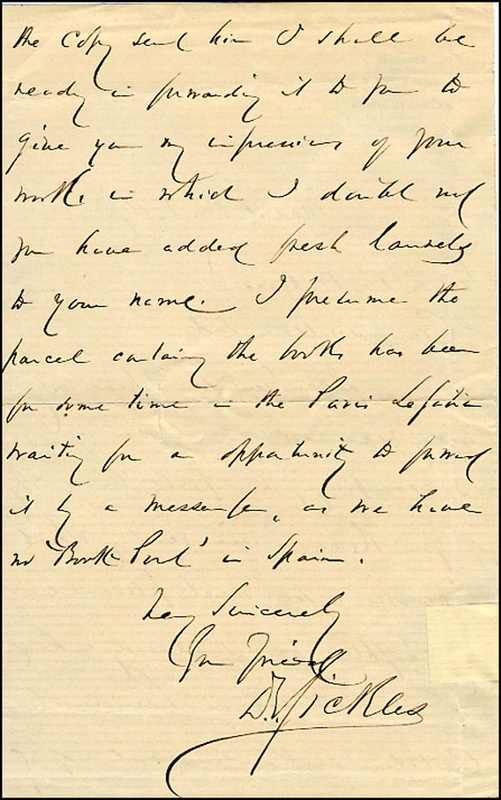 the copy sent him I shall be
ready in forwarding it to you to
give you my impressions of your
work, in which I doubt not
you have added fresh laurels
to your name. I presume the
parcel containing the books has been
for some time in the Paris Legation
waiting for a opportunity to forward
it by a messenger, as we have
no 'Book Post' in Spain.
Very Sincerely
Your friend
D. E. Sickles